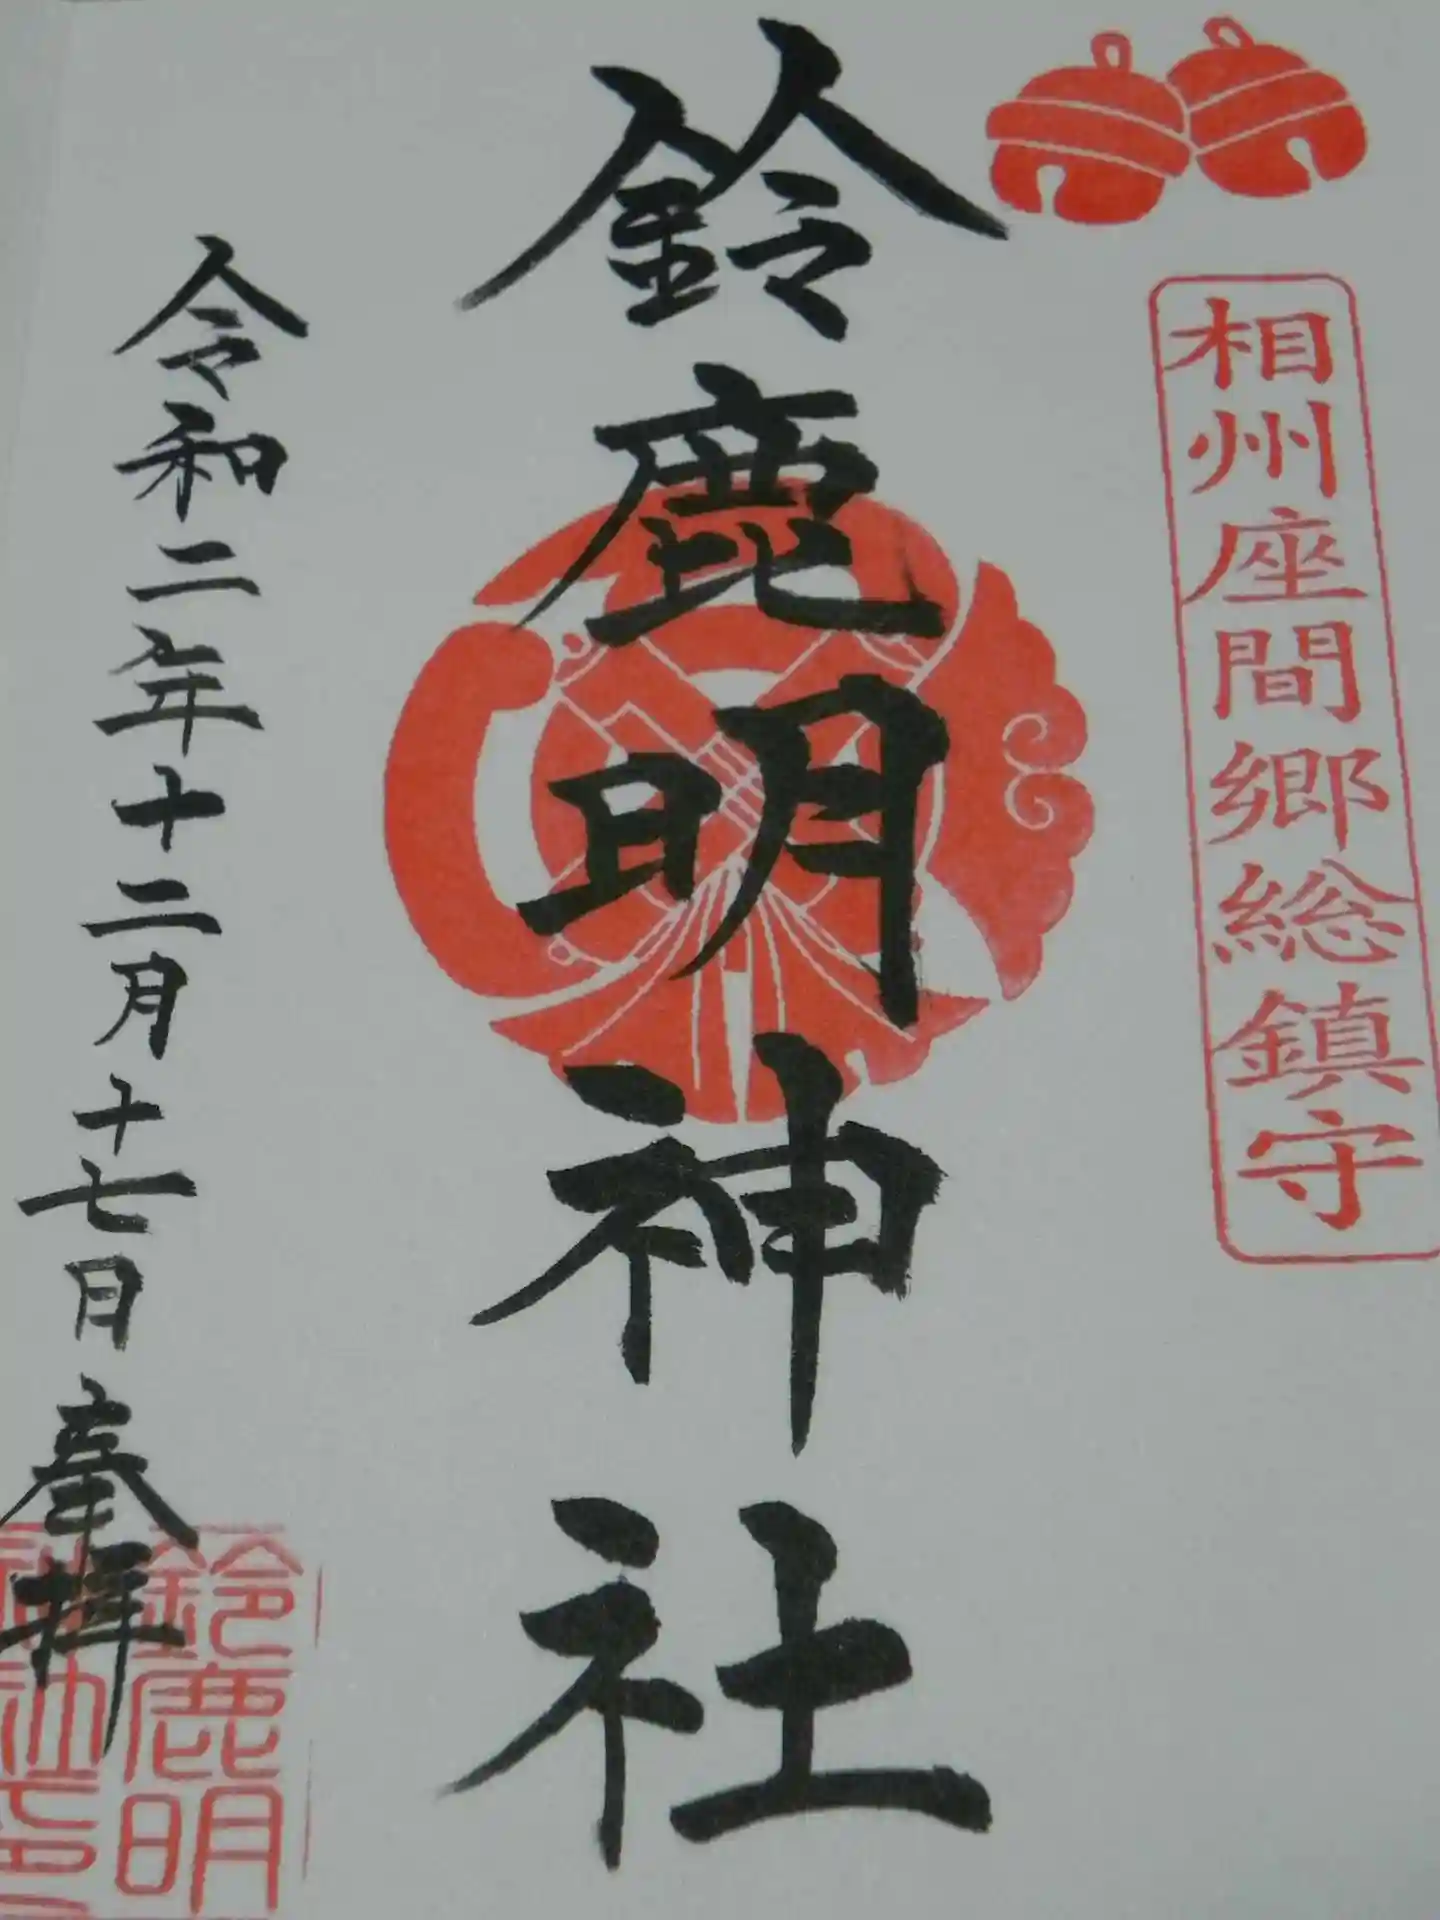 相州座間郷総鎮守
鈴鹿明神社
令和二年十二月十七日奉拝
鈴鹿明
神社印